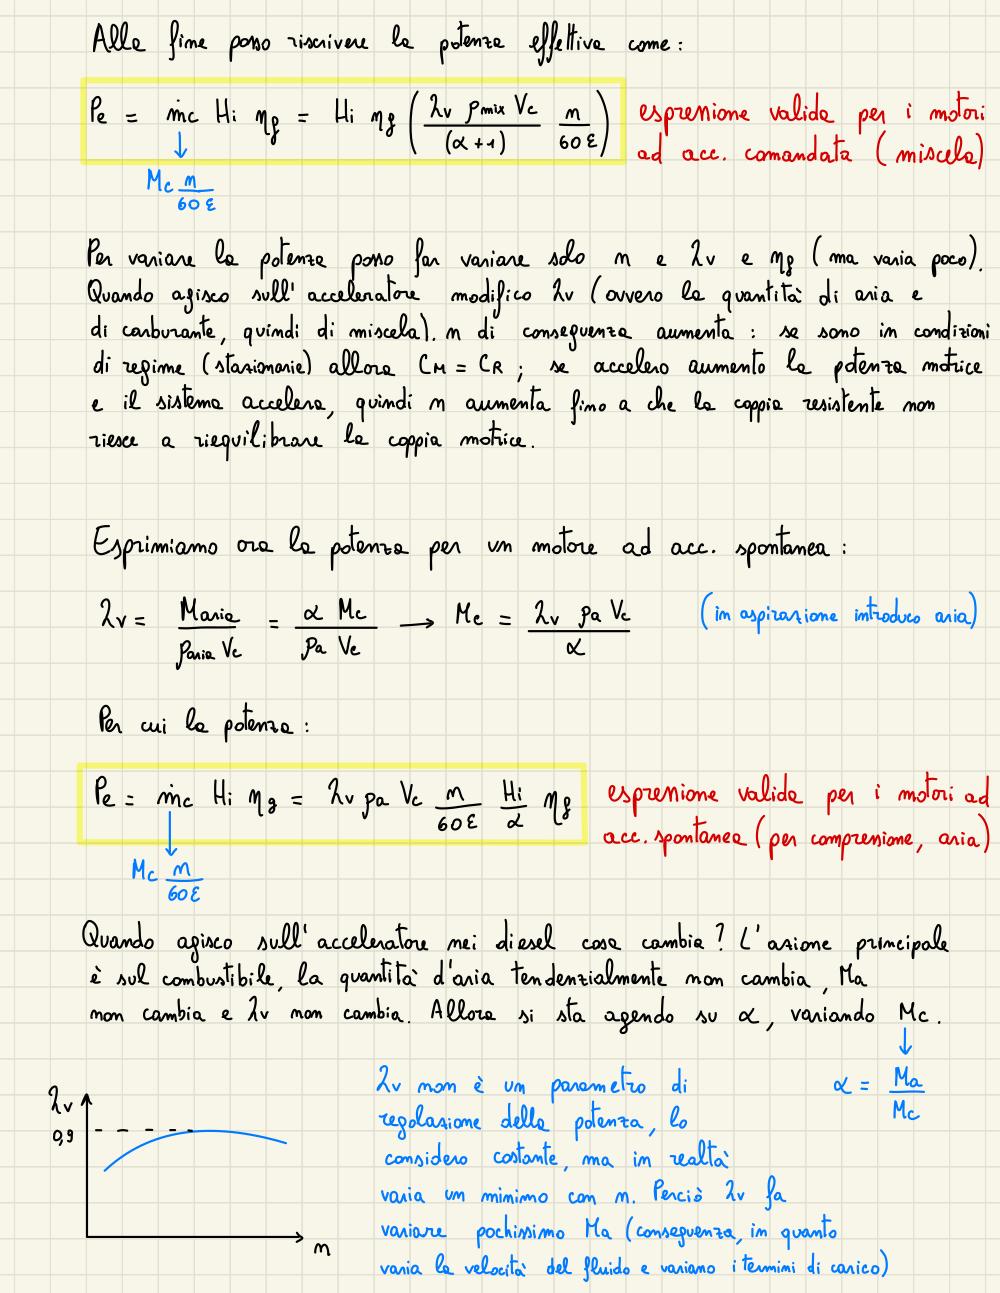 Alla fine posso riscrivere la potenza effettiva come:
Pe = ṁc Hi ηg = Hi ηg (λv ρmix Vc / (α+1) n / 60 ε) espressione valida per i motori
ad acc. comandata (miscela)
Mc n / 60 ε
Per variare la potenza posso far variare solo n e λv e ηg (ma varia poco).
Quando agisco sull'acceleratore modifico λv (ovvero la quantità di aria e
di carburante, quindi di miscela). n di conseguenza aumenta: se sono in condizioni
di regime (stazionarie) allora CM = CR; se accelero aumento la potenza motrice
e il sistema accelera, quindi n aumenta fino a che la coppia resistente non
riesce a riequilibrare la coppia motrice.
Esprimiamo ora la potenza per un motore ad acc. spontanea:
λv = Maria / ρaria Vc = α Mc / ρa Vc → Mc = λv ρa Vc / α (in aspirazione introduco aria)
Per cui la potenza:
Pe = ṁc Hi ηg = λv ρa Vc n / 60 ε Hi / α ηg espressione valida per i motori ad
acc. spontanea (per compressione, aria)
Mc n / 60 ε
Quando agisco sull'acceleratore nei diesel cosa cambia? L'azione principale
è sul combustibile, la quantità d'aria tendenzialmente non cambia, Ma
non cambia e λv non cambia. Allora si sta agendo su α, variando Mc.
α = Ma / Mc
λv
0,9
n
λv non è un parametro di
regolazione della potenza, lo
considero costante, ma in realtà
varia un minimo con n. Perciò λv fa
variare pochissimo Ma (conseguenza, in quanto
varia la velocità del fluido e variano i termini di carico)